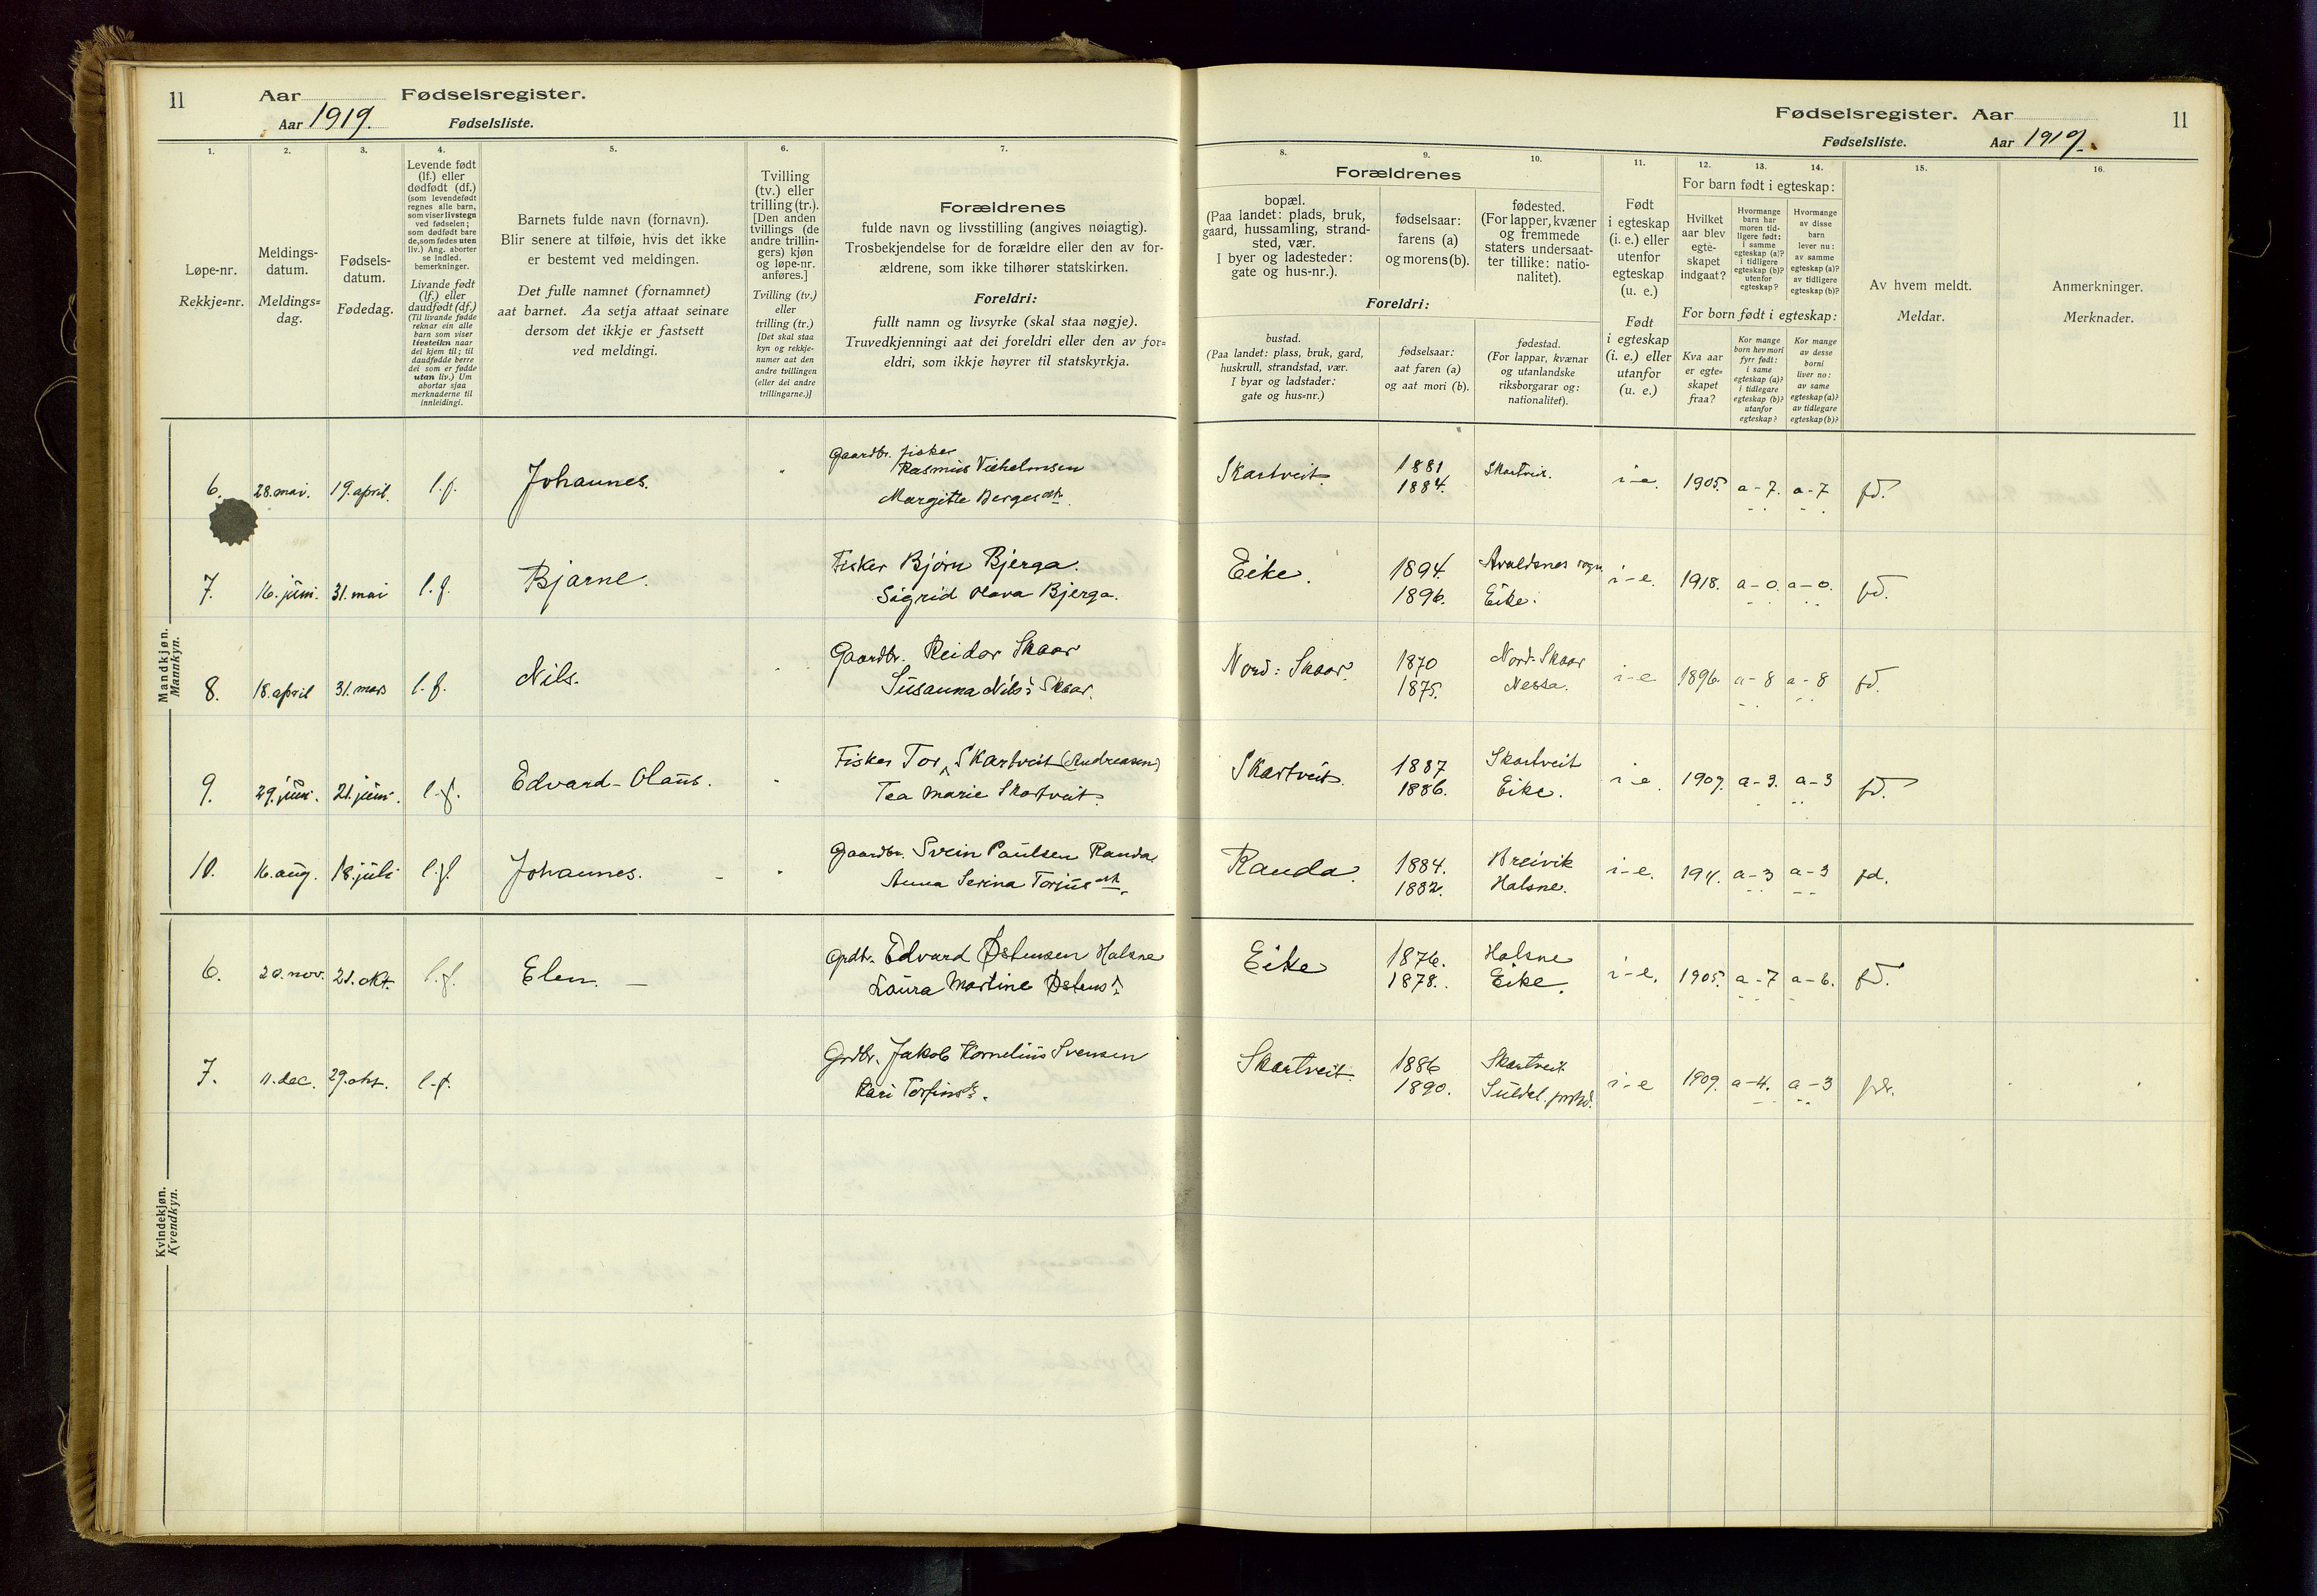 11
Aar
Fødselsregister.
Aar 1919.
Fødselsliste.
1.
2.
3.
4.
5.
6.
7.
Løpe-nr.
Rekkje=nr.
Meldings-
datum.
Meldings=
dag.
Fødsels-
datum.
Fødedag.
Levende født
(lf.) eller
dødfødt (df.)
(som levendefødt
regnes alle barn,
som viser livstegn
ved fødselen;
som dødfødt bare
de, som fødes uten
liv.) Ang. aborter
se indled.
bemerkninger.
Livande født
(lf.) eller
daudfødt (df.)
(Til livande fødde
reknar ein alle
barn som viser
livsteikn naar
dei kjem til; til
daudfødde berre
dei som er fødde
utan liv.) Um
abortar sjaa
merknaderne til
innleidingi.
Barnets fulde navn (fornavn).
Blir senere at tilføie, hvis det ikke
er bestemt ved meldingen.
Det fulle namnet (fornamnet)
aat barnet. Aa setja attaat seinare
dersom det ikkje er fastsett
ved meldingi.
Tvilling
(tv.) eller
trilling (tr.).
[Den anden
tvillings (de
andre trillin-
gers) kjøn
og løpe-nr.
anføres.]
Tvilling (tv.)
eller
trilling (tr.)
[Det skal staa
kyn og rekkje-
numer aat den
andre tvillingen
(eller dei andre
trillingarne.)]
Forældrenes
fulde navn og livsstilling (angives nøiagtig).
Trosbekjendelse for de forældre eller den av for-
ældrene, som ikke tilhører statskirken.
Foreldri:
fullt namn og livsyrke (skal staa nøgje).
Truvedkjenningi aat dei foreldri eller den av for=
eldri, som ikkje høyrer til statskyrkja.
Mandkjøn.
Mannkyn.
6. 28. mai. 19. april. l.f. Johannes. Gaardbr. fisker
Rasmus Vilhelmsen
Margitte Berges dtr.
7. 16. juni. 31. mai l.f. Bjarne. Fisker Bjørn Bjerga.
Sigrid Olava Bjerga.
8. 18. april 31. mars l.f. Nils. Gaardbr. Reidar Skaar
Susanna Nils's Skaar.
9. 29. juni. 21. juni. l.f. Edvard-Olaus. Fisker Tor Skartveit (Andreasen)
Tea Marie Skartveit.
10. 16. aug. 18. juli l.f. Johannes. Gaardbr. Svein Paulsen Randa
Anna Serina Torjus dtr.
Kvindekjøn.
Kvendkyn.
6. 20. nov. 21. okt. l.f. Elen. Grdbr. Edvard Østensen Halsne
Laura Martine Østens
7. 11. dec. 29. okt. l.f. Grdbr. Jakob Kornelius Svensen
Kari Torfinsd.
Fødselsregister. Aar
11
Fødselsliste.
Aar 1919.
8.
9.
10.
11.
12.
13.
14.
15.
16.
Forældrenes
bopæl.
(Paa landet: plads, bruk,
gaard, hussamling, strand-
sted, vær.
I byer og ladesteder:
gate og hus-nr.).
fødselsaar:
farens (a)
og morens (b).
fødested.
(For lapper, kvæner
og fremmede
staters undersaat-
ter tillike: natio-
nalitet).
Foreldri:
bustad.
(Paa landet: plass, bruk, gard,
huskrull, strandstad, vær.
I byar og ladstader:
gate og hus=nr.)
fødselsaar:
aat faren (a)
og aat mori (b).
fødestad.
(For lappar, kvænar
og utanlandske
riksborgarar og:
nationalitet).
Født
i egteskap
(i. e.) eller
utenfor
egteskap
(u. e.)
Født
i egteskap
(i. e.) eller
utanfor
(u. e.)
For barn født i egteskap:
Hvilket
aar blev
egte-
skapet
indgaat?
Hvormange
barn har
moren tid-
ligere født:
i samme
egteskap (a)?
i tidligere
egteskap (b)?
utenfor
egteskap?
Hvormange
av disse
barn
lever nu:
av samme
egteskap (a)?
av tidligere
egteskap (b)?
For born født i egteskap:
Kva aar
er egte=
skapet
fraa?
Kor mange
born hev mori
fyrr født:
i same
egteskap (a)?
i tidlegare
egteskap (b)?
utanfor
egteskap?
Kor mange
av desse
borni
liver no:
av same
egteskap (a)?
av tidlegare
egteskap (b)?
Av hvem meldt.
Meldar.
Anmerkninger.
Merknader.
Skartveit. 1881 Skartveit. i-e. 1905. a-7. a-7 fd.
1884.
Eike. 1894. Avaldsnes sogn i-e. 1918. a-0. a-0. fd.
1896. Eike.
Nord: Skaar. 1870 Nord-Skaar i-e 1896. a-8 a-8 fd.
1875. Nessa.
Skartveit. 1887 Skartveit i-e. 1907. a-3. a-3 fd.
1886. Eike.
Randa. 1884. Breivik i-e. 1911. a-3 a-3 fd.
1882. Halsne.
Eike 1876. Halsne i-e. 1905. a-7 a-6. fd.
1878. Eike.
Skartveit. 1886 Skartveit i-e 1909. a-4. a-3
1890. Suldal. prstgd.